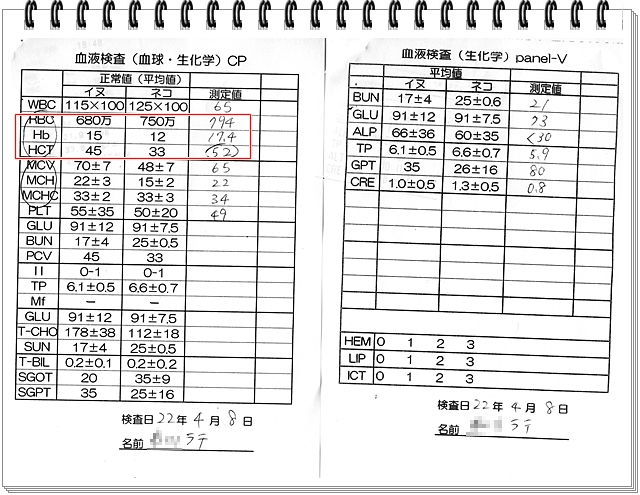 血液検査（血球・生化学）CP
正常値（平均値）
イヌ ネコ 測定値
WBC 115×100 125×100 65
RBC 680万 750万 794
Hb 15 12 17.4
HCT 45 33 (52)
MCV 70±7 48±7 65
MCH 22±3 15±2 22
MCHC 33±2 33±3 34
PLT 55±35 50±20 49
GLU 91±12 91±7.5
BUN 17±4 25±0.5
PCV 45 33
II 0-1 0-1
TP 6.1±0.5 6.6±0.7
Mf － －
GLU 91±12 91±7.5
T-CHO 178±38 112±18
SUN 17±4 25±0.5
T-BIL 0.2±0.1 0.2±0.2
SGOT 20 35±9
SGPT 35 25±16
検査日 22年 4月 8日
名前 ラテ
血液検査（生化学）panel-V
平均値
イヌ ネコ 測定値
BUN 17±4 25±0.6 21
GLU 91±12 91±7.5 93
ALP 66±36 60±35 <30
TP 6.1±0.5 6.6±0.7 5.9
GPT 35 26±16 80
CRE 1.0±0.5 1.3±0.5 0.8
HEM 0 1 2 3
LIP 0 1 2 3
ICT 0 1 2 3
検査日 22年 4月 8日
名前 ラテ